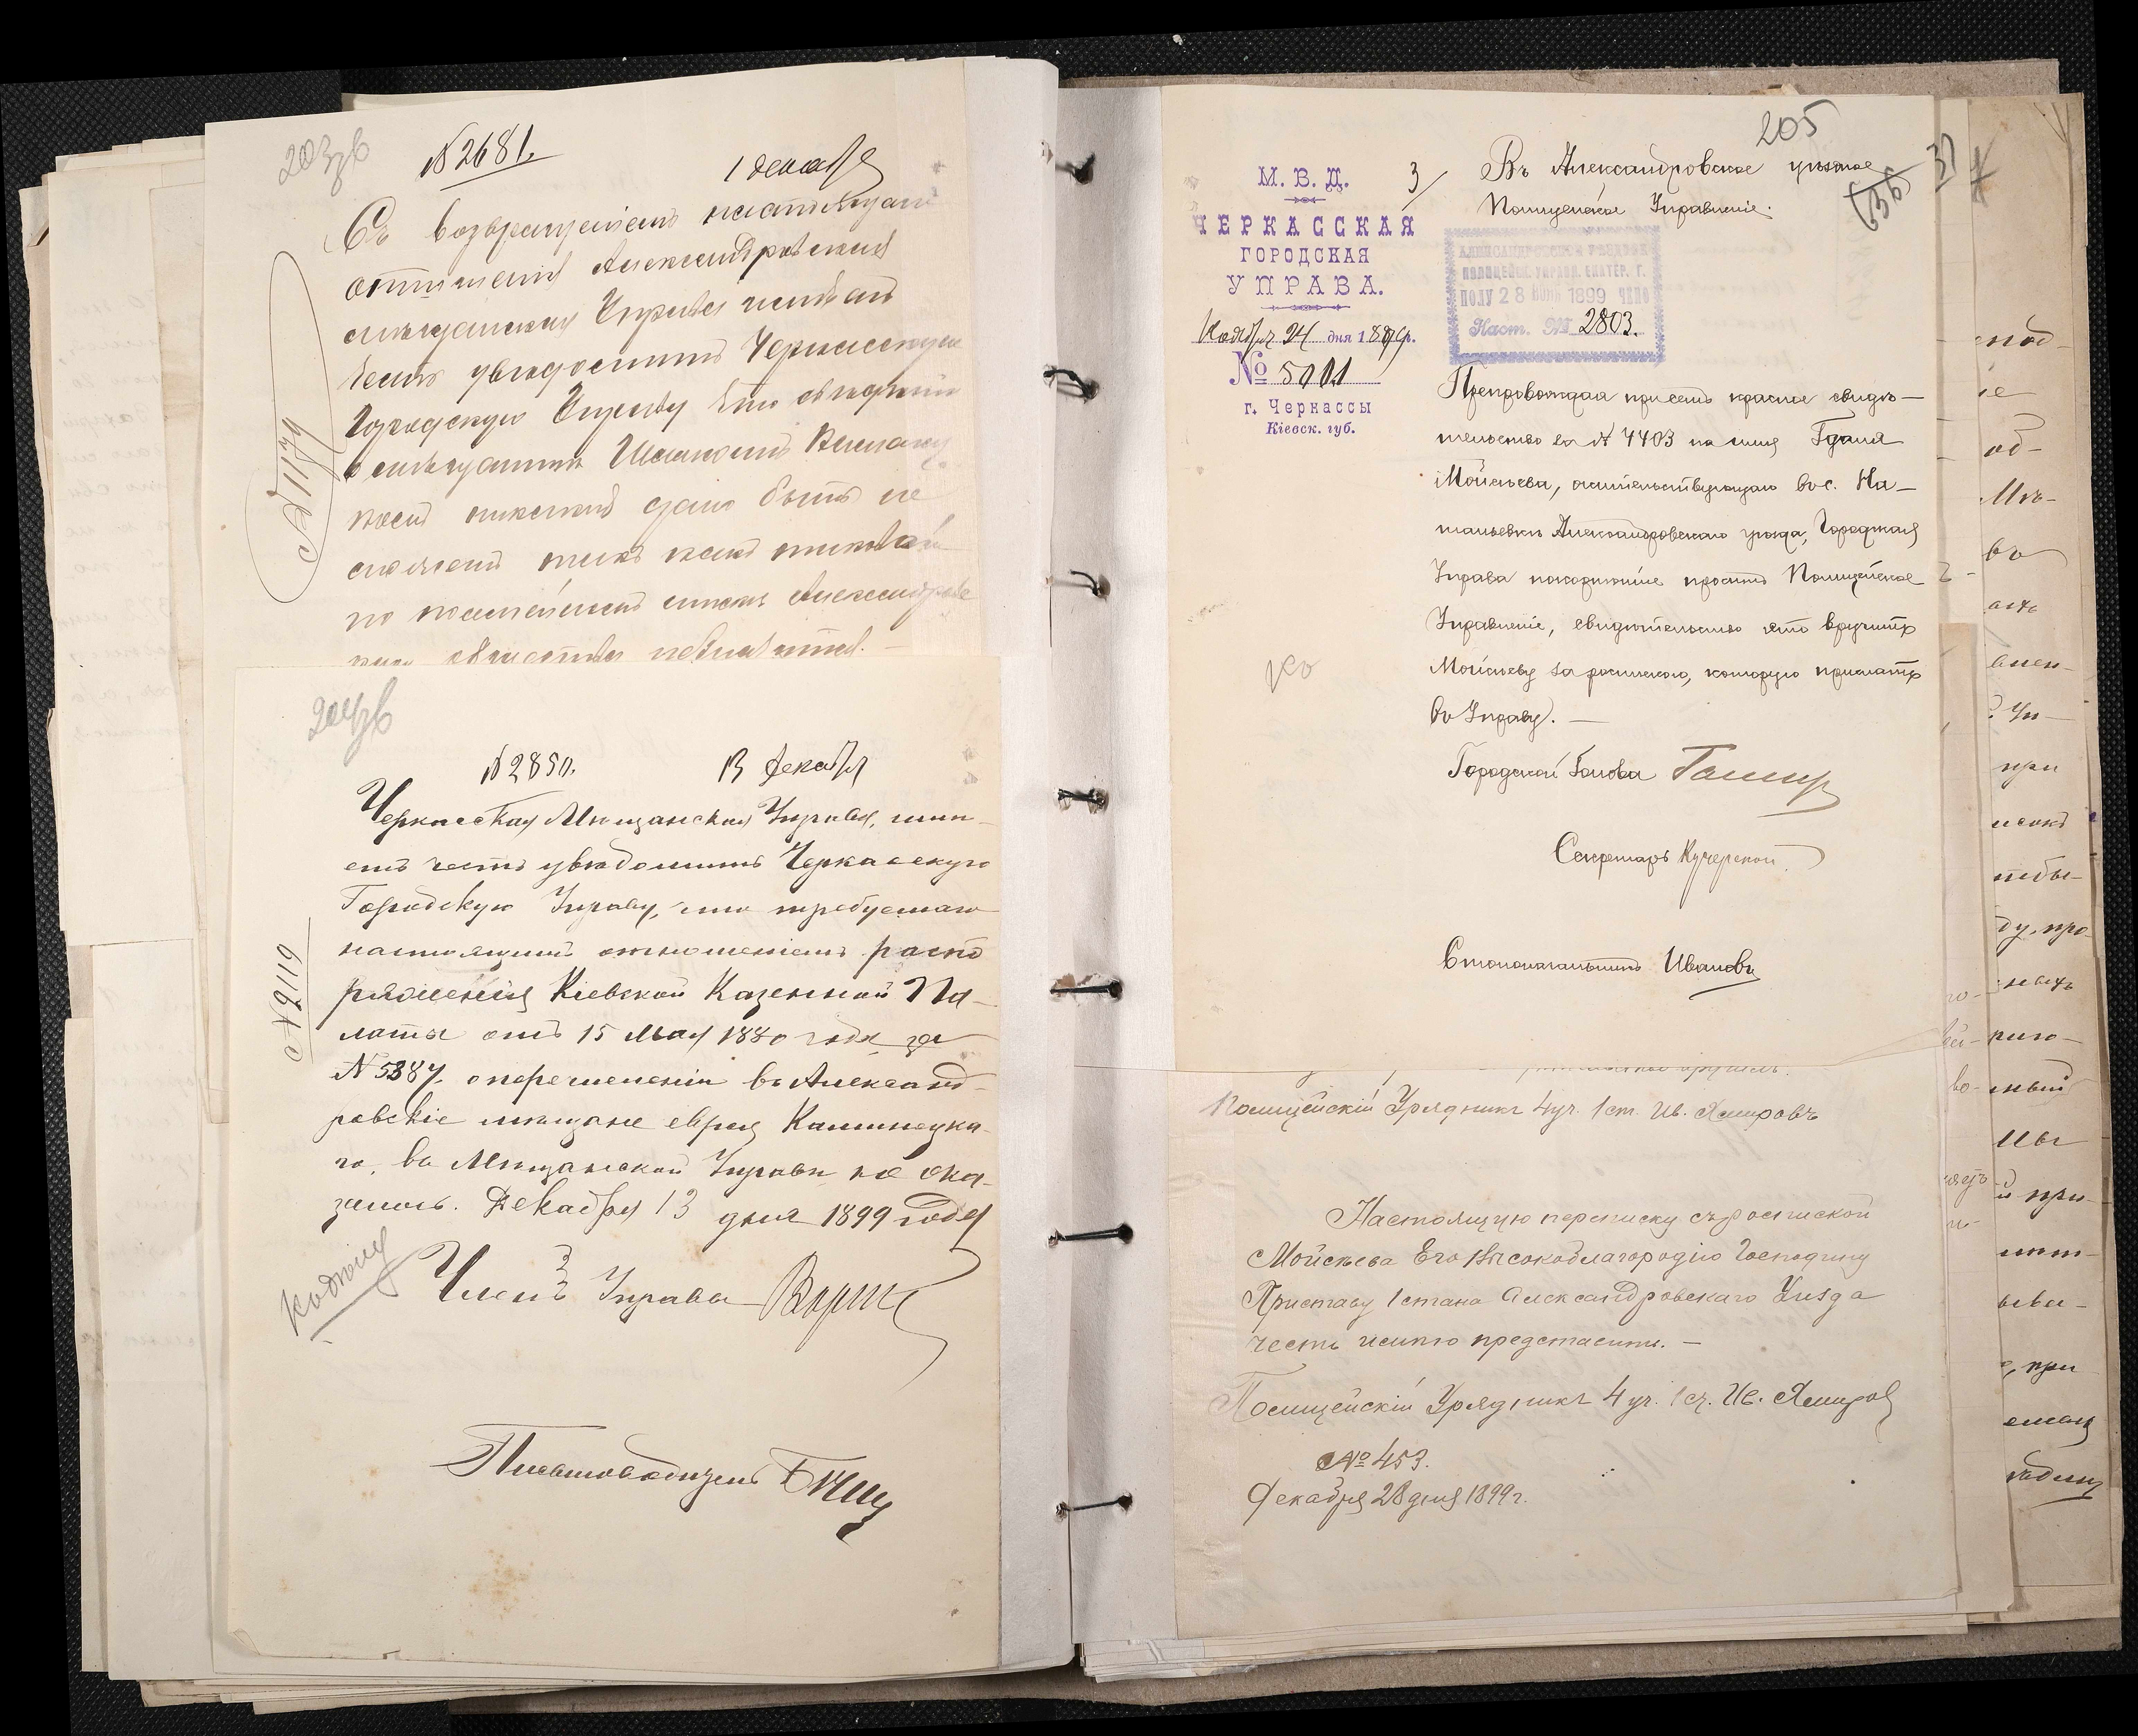 203зв
№ 2681.
1 декабря
Съ возвращеніемъ настоящаго
отношенія Александровская
мѣщанская Управа имѣетъ
честь увѣдомить Черкасскую
Городскую Управу что свѣдѣній
о мѣщанинѣ
никакихъ дано быть не
можетъ такъ какъ таковой
по посемейнымъ спискамъ
204зв
№ 2850.
13 Декабря
Черкасская Мѣщанская Управа, имѣ-
етъ честь увѣдомить Черкасскую
Городскую Управу, что требуемаго
настоящимъ отношеніемъ распо
ряженія Кіевской Казенной Па-
латы отъ 15 Мая 1880 года за
№ 5387, о перечисленіи въ Александ-
ровскіе мѣщане еврея Каминецка-
го, въ Мѣщанской Управѣ не ока-
залось. Декабря 13 дня 1899 года
Членъ Управы
Письмоводитель
№ 6110
205
3/
Въ Александровское уѣздное
Полицейское Управленіе.
(36)
М. В. Д.
ЧЕРКАССКАЯ
ГОРОДСКАЯ
УПРАВА.
Ноября 24 дня 1899 г.
№ 5001
г. Черкассы
Кіевск. губ.
АЛЕКСАНДРОВСК. УѢЗДНОЕ
ПОЛИЦЕЙСК. УПРАВЛ. ЕКАТЕР. Г.
ПОЛУ 28 НОЯБ 1899 ЧЕНО
Наст. № 2803.
Препровождая при семъ красное свидѣ-
тельство за № 4403 на имя
Мойсѣева, жительствующаго въ с. На-
тальевкѣ Александровскаго уѣзда, Городская
Управа покорнѣйше проситъ Полицейское
Управленіе, свидѣтельство это вручить
Мойсѣеву за роспискою, которую прислать
въ Управу. —
Городской Голова
Секретарь Кучерской
Столоначальникъ Ивановъ
Полицейскій Урядникъ 4 уч. 1 ст. Ив. Ямировъ
Настоящую переписку съ роспиской
Мойсѣева Его Высокоблагородію Господину
Приставу 1 стана Александровскаго Уѣзда
честь имѣю представить. —
Полицейскій Урядникъ 4 уч. 1 ст. Ив. Ямировъ
№ 453.
Декабря 28 дня 1899 г.